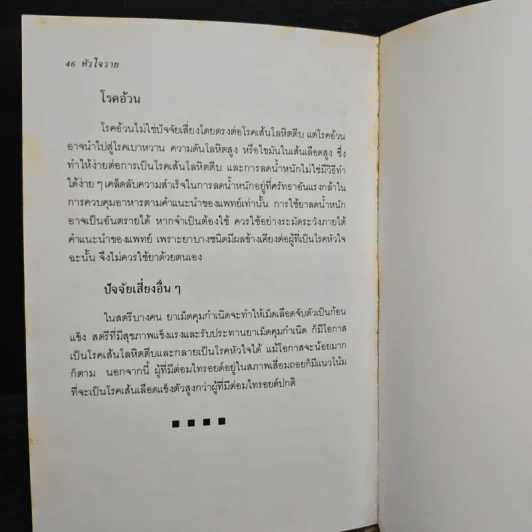 46 หัวใจวาย
โรคอ้วน
โรคอ้วนไม่ใช่ปัจจัยเสี่ยงโดยตรงต่อโรคเส้นโลหิตตีบ แต่โรคอ้วน
อาจนำไปสู่โรคเบาหวาน ความดันโลหิตสูง หรือไขมันในเส้นเลือดสูง ซึ่ง
ทำให้ง่ายต่อการเป็นโรคเส้นโลหิตตีบ และการลดน้ำหนักไม่ใช่มีวิธีทำ
ได้ง่าย ๆ เคล็ดลับความสำเร็จในการลดน้ำหนักอยู่ที่ศรัทธาอันแรงกล้าใน
การควบคุมอาหารตามคำแนะนำของแพทย์เท่านั้น การใช้ยาลดน้ำหนัก
อาจเป็นอันตรายได้ หากจำเป็นต้องใช้ ควรใช้อย่างระมัดระวังภายใต้
คำแนะนำของแพทย์ เพราะยาบางชนิดมีผลข้างเคียงต่อผู้ที่เป็นโรคหัวใจ
ฉะนั้น จึงไม่ควรใช้ยาด้วยตนเอง
ปัจจัยเสี่ยงอื่น ๆ
ในสตรีบางคน ยาเม็ดคุมกำเนิดจะทำให้เม็ดเลือดจับตัวเป็นก้อน
แข็ง สตรีที่มีสุขภาพแข็งแรงและรับประทานยาเม็ดคุมกำเนิด ก็มีโอกาส
เป็นโรคเส้นโลหิตตีบและกลายเป็นโรคหัวใจได้ แม้โอกาสจะน้อยมาก
ก็ตาม นอกจากนี้ ผู้ที่มีต่อมไทรอยด์อยู่ในสภาพเสื่อมถอยก็มีแนวโน้ม
ที่จะเป็นโรคเส้นเลือดแข็งตัวสูงกว่าผู้ที่มีต่อมไทรอยด์ปกติ